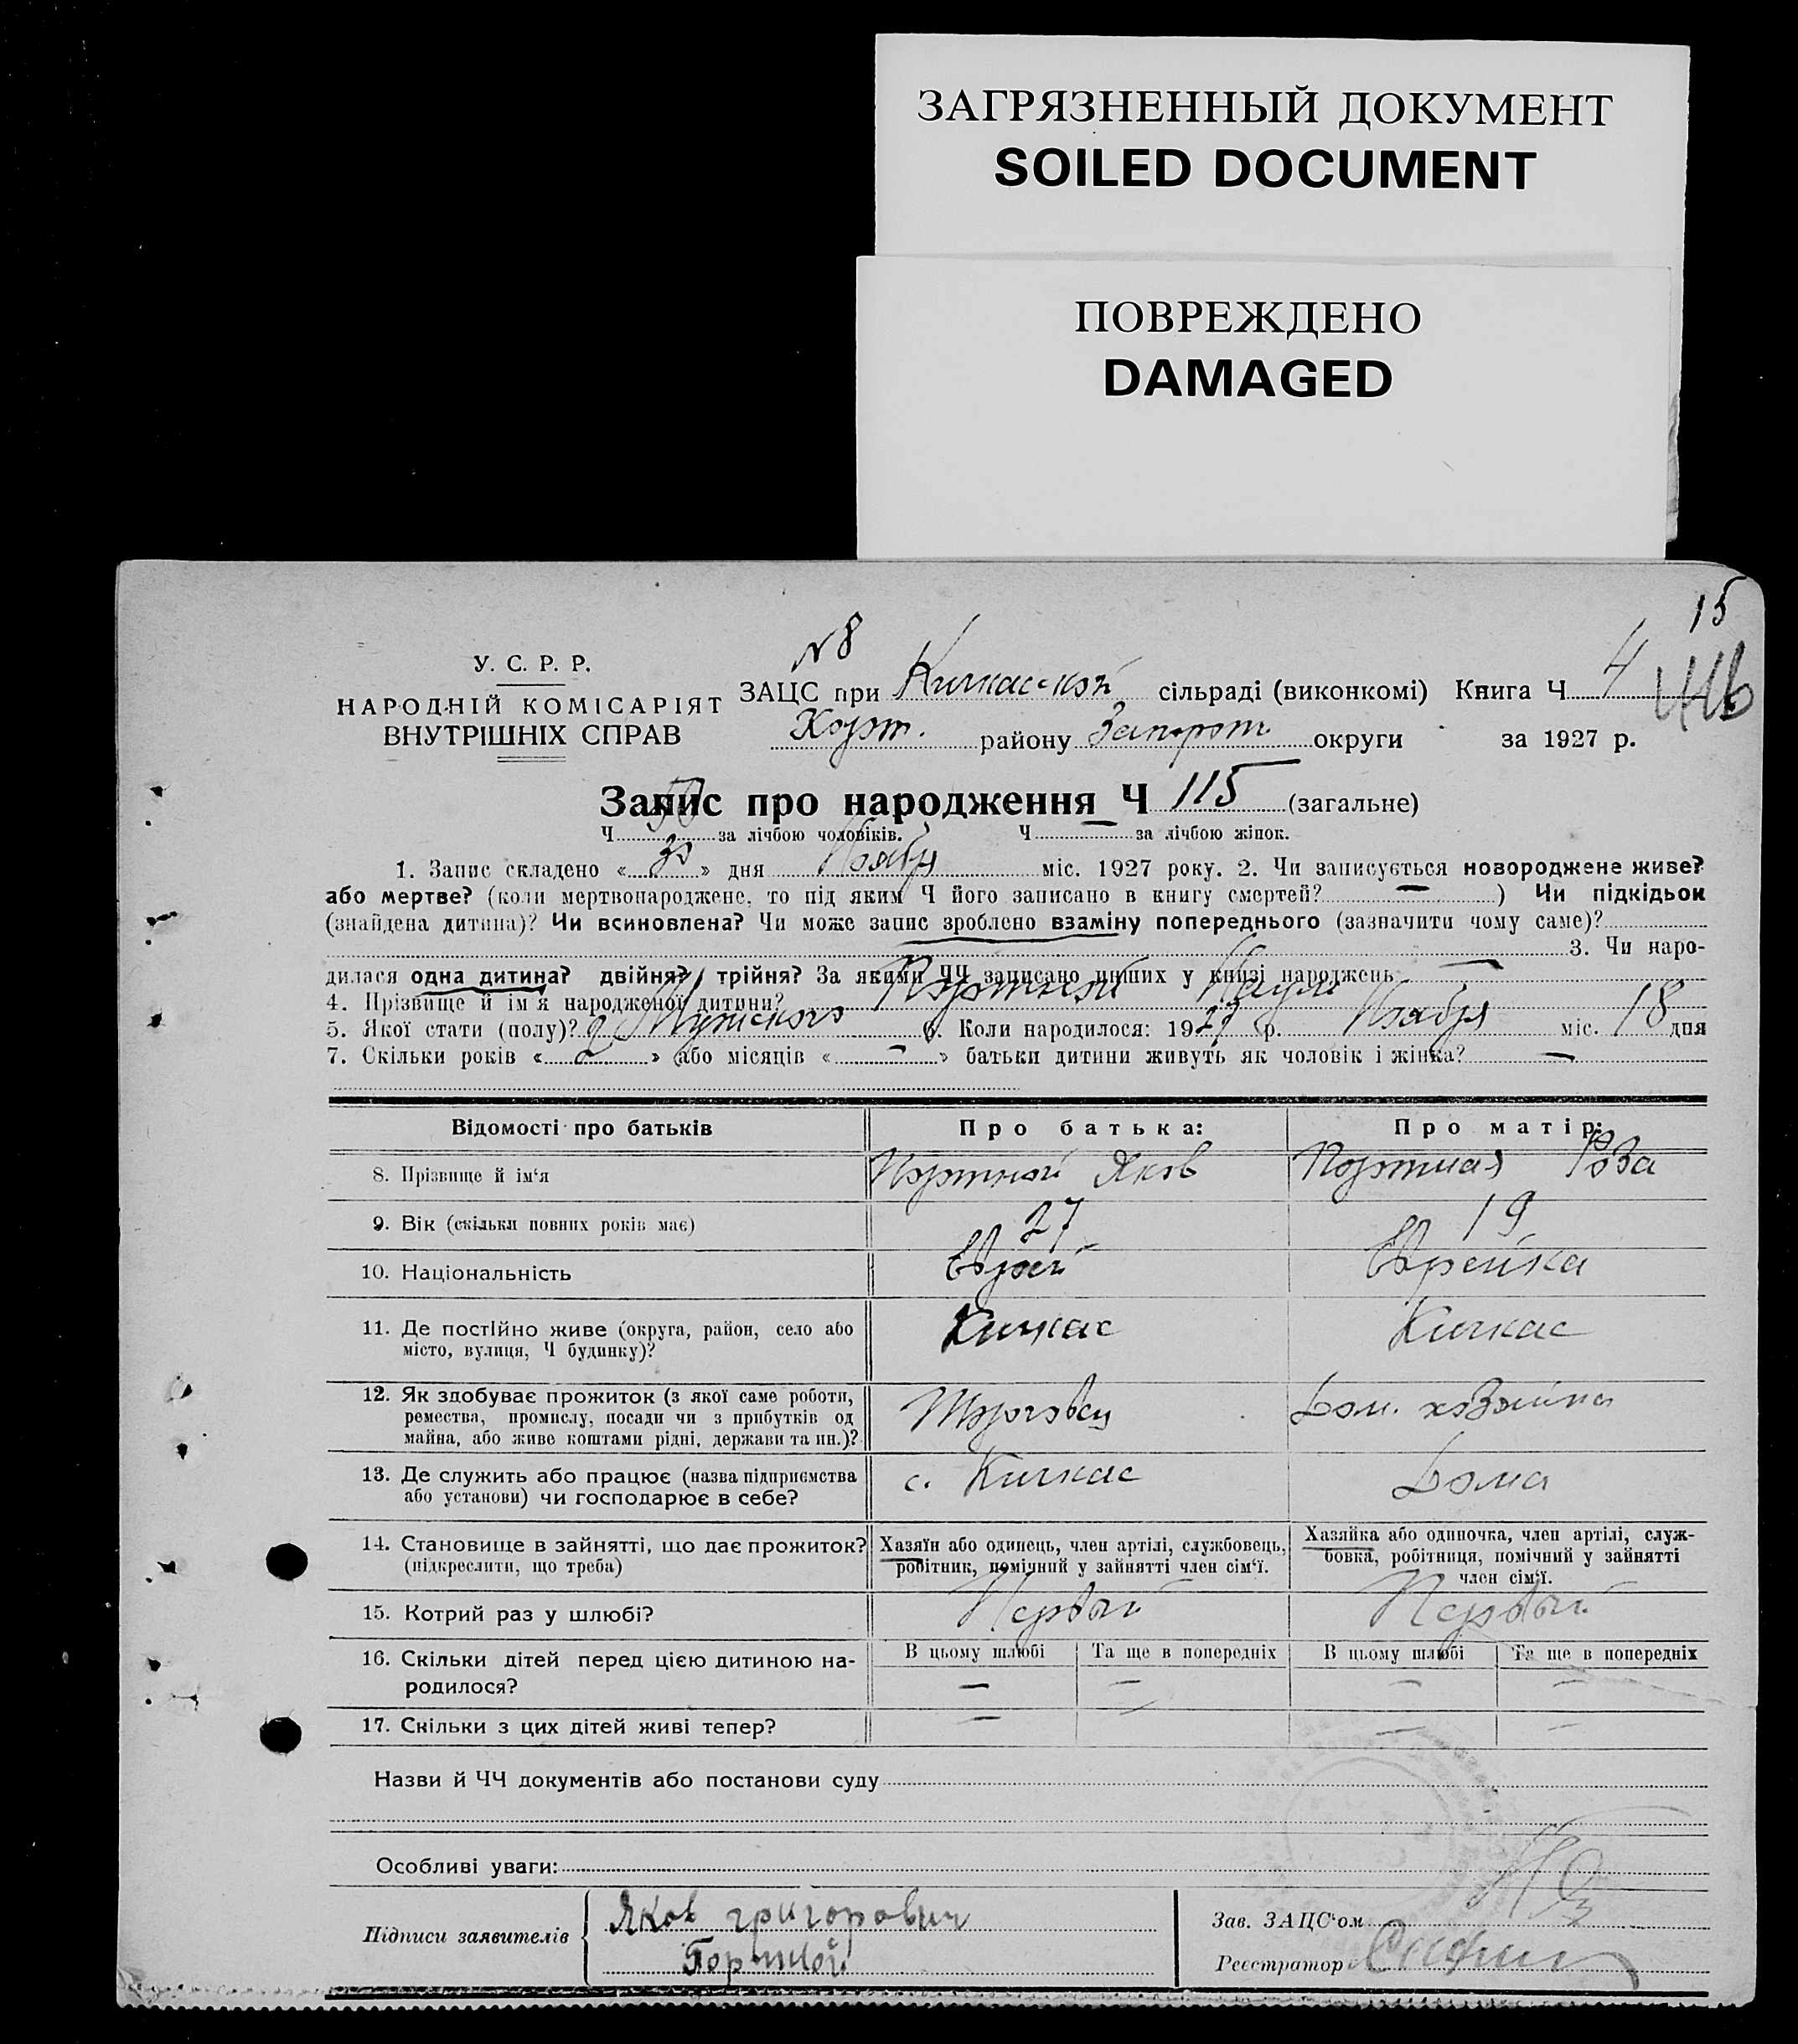 ЗАГРЯЗНЕННЫЙ ДОКУМЕНТ
SOILED DOCUMENT
ПОВРЕЖДЕНО
DAMAGED
15
№ 8
У. С. Р. Р.
НАРОДНІЙ КОМІСАРІЯТ
ВНУТРІШНІХ СПРАВ
ЗАЦС при Кичкас-кой сільраді (виконкомі) Книга Ч 4
Хорт. району Запорож. округи за 1927 р.
Запис про народження Ч 115 (загальне)
Ч за лічбою чоловіків. Ч — за лічбою жінок.
1. Запис складено « 30 » дня Ноября міс. 1927 року. 2. Чи записується новороджене живе?
або мертве? (коли мертвонароджене, то під яким Ч його записано в книгу смертей? — ) Чи підкідьок
(знайдена дитина)? Чи всиновлена? Чи може запис зроблено взаміну попереднього (зазначити чому саме)?
3. Чи наро-
дилася одна дитина? двійня? трійня? За якими ЧЧ записано инших у книзі народжень —
4. Прізвище й ім'я народженої дитини? Портной
5. Якої стати (полу)? Мужского 6. Коли народилося: 1927 р. Ноября міс. 18 дня
7. Скільки років « 2 » або місяців « — » батьки дитини живуть як чоловік і жінка? —
Відомості про батьків Про батька: Про матір:
8. Прізвище й ім'я Портной Яков Портная Роза
9. Вік (скільки повних років має) 27 19
10. Національність Еврей Еврейка
11. Де постійно живе (округа, район, село або місто, вулиця, Ч будинку)? Кичкас Кичкас
12. Як здобуває прожиток (з якої саме роботи, ремества, промислу, посади чи з прибутків од майна, або живе коштами рідні, держави та ин.)? Торговец Дом. хозяйка
13. Де служить або працює (назва підприємства або установи) чи господарює в себе? с. Кичкас Дома
14. Становище в зайнятті, що дає прожиток? (підкреслити, що треба) Хазяїн або одинець, член артілі, службовець, робітник, помічний у зайнятті член сім'ї. Хазяйка або одиночка, член артілі, служ-бовка, робітниця, помічний у зайнятті член сім'ї.
15. Котрий раз у шлюбі? Первый Первый
16. Скільки дітей перед цією дитиною на-родилося? В цьому шлюбі Та ще в попередніх В цьому шлюбі Та ще в попередніх
— — — —
17. Скільки з цих дітей живі тепер? — — —
Назви й ЧЧ документів або постанови суду
Особливі уваги:
Підписи заявителів Яков григорович
Портной
Зав. ЗАЦС'ом
Реєстратор